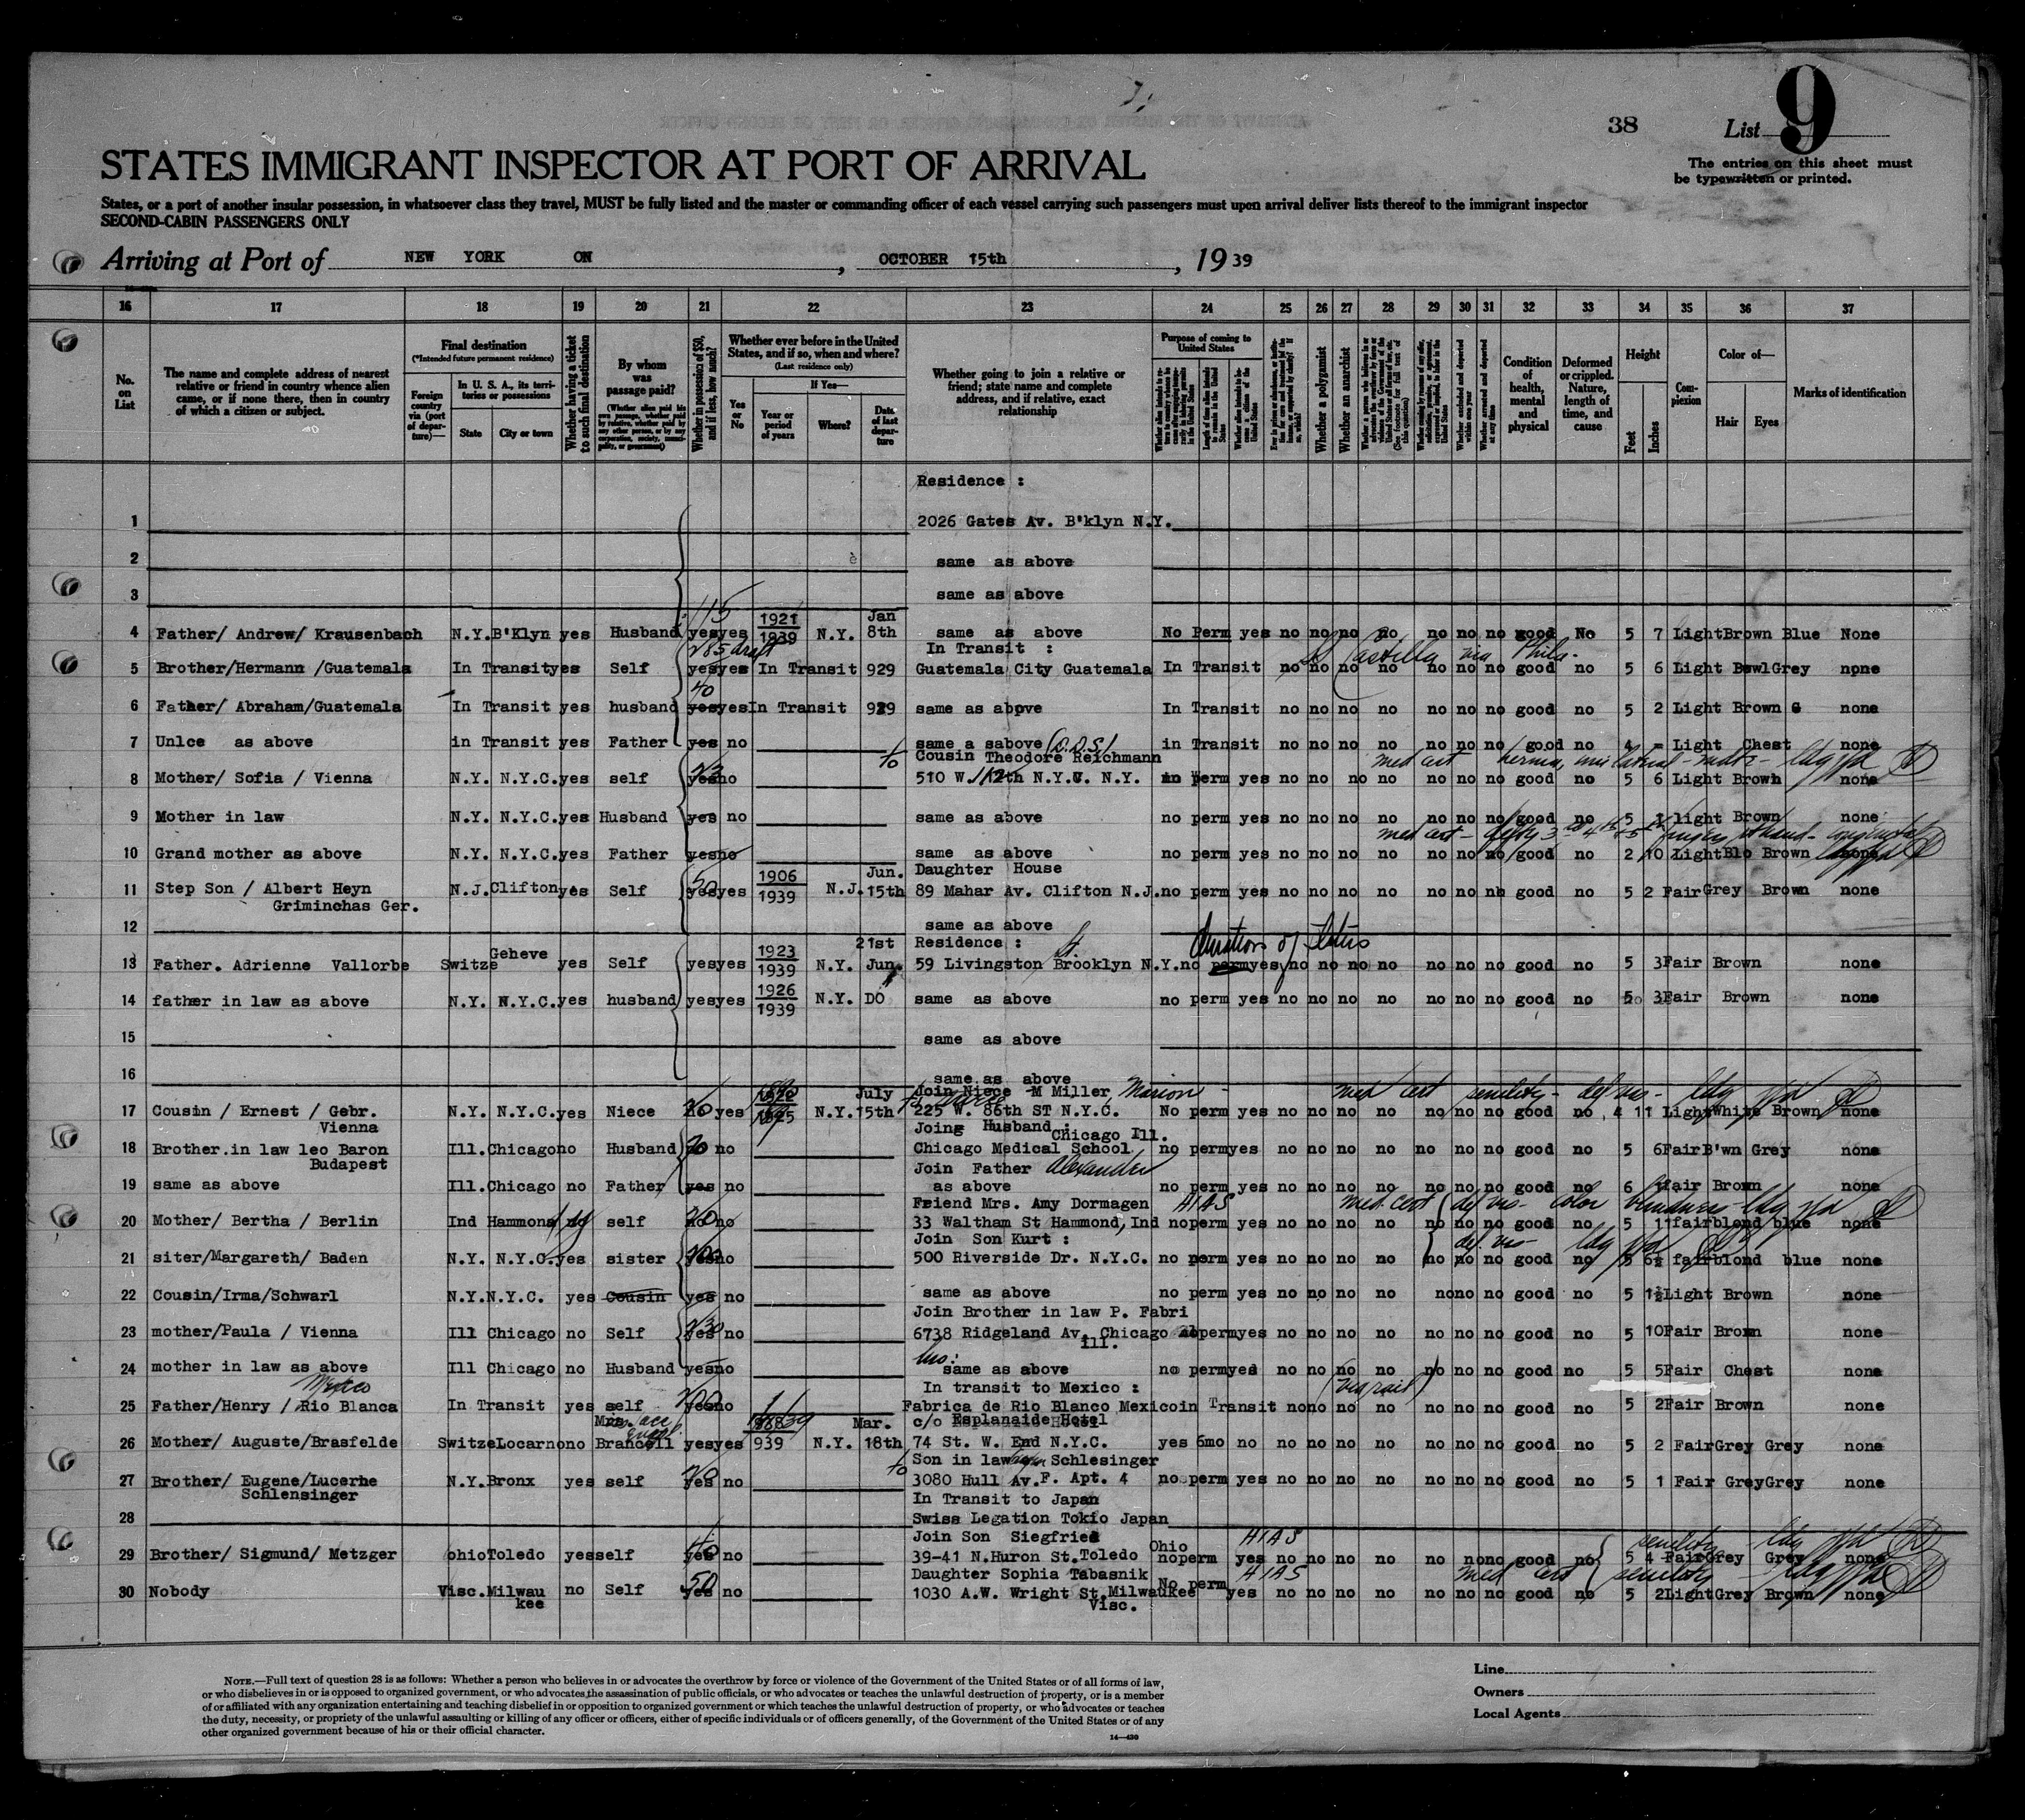 38
List 9
The entries on this sheet must
be typewritten or printed.
STATES IMMIGRANT INSPECTOR AT PORT OF ARRIVAL
States, or a port of another insular possession, in whatsoever class they travel, MUST be fully listed and the master or commanding officer of each vessel carrying such passengers must upon arrival deliver lists thereof to the immigrant inspector
SECOND-CABIN PASSENGERS ONLY
Arriving at Port of NEW YORK ON , OCTOBER 15th , 19 39
16 17 18 19 20 21 22 23 24 25 26 27 28 29 30 31 32 33 34 35 36 37
No. on List
The name and complete address of nearest relative or friend in country whence alien came, or if none there, then in country of which a citizen or subject.
Final destination
(*Intended future permanent residence)
Foreign country via (port of departure)—
In U. S. A., its territories or possessions
State
City or town
Whether having a ticket to such final destination
By whom was passage paid?
Whether in possession of $50, and if less, how much?
Whether ever before in the United States, and if so, when and where?
(Last residence only)
Yes or No
If Yes—
Year or period of years
Where?
Date of last departure
Whether going to join a relative or friend; state name and complete address, and if relative, exact relationship
Purpose of coming to United States
Whether a polygamist
Whether an anarchist
Condition of health, mental and physical
Deformed or crippled. Nature, length of time, and cause
Height
Feet
Inches
Complexion
Color of—
Hair
Eyes
Marks of identification
Residence :
1 2026 Gates Av. B'klyn N.Y.
2 same as above
3 same as above
115
1921 Jan
4 Father/ Andrew/ Krausenbach N.Y. B'Klyn yes Husband yes yes 1939 N.Y. 8th same as above No Perm yes no no no no no no no good No 5 7 Light Brown Blue None
In Transit :
5 Brother/Hermann /Guatemala In Transit yes Self yes yes In Transit 929 Guatemala City Guatemala In Transit no no no no no no no good no 5 6 Light Bowl Grey none
40
6 Father/ Abraham/Guatemala In Transit yes husband yes yes In Transit 929 same as above In Transit no no no no no no no good no 5 2 Light Brown G none
7 Unlce as above in Transit yes Father yes no same a sabove (D.D.S.) in Transit no no no no no no no good no 4 - Light Chest none
to Cousin Theodore Reichmann
8 Mother/ Sofia / Vienna N.Y. N.Y.C. yes self yes no 510 W. 112th N.Y. N.Y. Perm yes no no no no no no no good no 5 6 Light Brown none
9 Mother in law N.Y. N.Y.C. yes Husband yes no same as above no perm yes no no no no no no no good no 5 1 light Brown none
10 Grand mother as above N.Y. N.Y.C. yes Father yes no same as above no perm yes no no no no no no no good no 2 10 Light Blo Brown none
1906 Jun. Daughter House
11 Step Son / Albert Heyn N.J. Clifton yes Self yes yes 1939 N.J. 15th 89 Mahar Av. Clifton N.J. no perm yes no no no no no no no good no 5 2 Fair Grey Brown none
Griminchas Ger.
12 same as above
Geheve 1923 21st Residence : duration of status
13 Father. Adrienne Vallorbe Switze yes Self yes yes 1939 N.Y. Jun. 59 Livingston St. Brooklyn N.Y. no perm yes no no no no no no no good no 5 3 Fair Brown none
1926
14 father in law as above N.Y. N.Y.C. yes husband yes yes 1939 N.Y. DO same as above no perm yes no no no no no no no good no 5 3 Fair Brown none
15 same as above
16 same as above
July Join Niece M Miller, Marion med cert senility
17 Cousin / Ernest / Gebr. N.Y. N.Y.C. yes Niece no yes N.Y. 15th 225 W. 86th ST N.Y.C. No perm yes no no no no no no no good no 4 11 Light White Brown none
Vienna
Joing Husband : Chicago Ill.
18 Brother.in law leo Baron Ill. Chicago no Husband no Chicago Medical School no perm yes no no no no no no no good no 5 6 Fair B'wn Grey none
Budapest
Join Father Alexander
19 same as above Ill. Chicago no Father yes no as above no perm yes no no no no no no no good no 6 Fair Brown none
Friend Mrs. Amy Dormagen HIAS med. cert def vis - color blindness
20 Mother/ Bertha / Berlin Ind Hammond self no 33 Waltham St Hammond, Ind no perm yes no no no no no no no good no 5 fair blond blue none
Join Son Kurt : def. vis
21 siter/Margareth/ Baden N.Y. N.Y.C. yes sister no 500 Riverside Dr. N.Y.C. no perm yes no no no no no no no good no 5 6½ fair blond blue none
22 Cousin/Irma/Schwarl N.Y. N.Y.C. yes Cousin yes no same as above no perm yes no no no no no no no good no 5 1½ Light Brown none
Join Brother in law P. Fabri
23 mother/Paula / Vienna Ill Chicago no Self yes no 6738 Ridgeland Av. Chicago perm yes no no no no no no no good no 5 10 Fair Brown none
Ill.
24 mother in law as above Ill Chicago no Husband yes no same as above no perm yes no no no no no no no good no 5 5 Fair Chest none
Mexico In transit to Mexico : (via rail)
25 Father/Henry / Rio Blanca In Transit yes self no Fabrica de Rio Blanco Mexico in Transit no no no no no no no good no 5 2 Fair Brown none
Mrs. Mar. c/o Esplanaide Hotel
26 Mother/ Auguste/Brasfelde Switze Locarno no Brancoll yes yes 939 N.Y. 18th 74 St. W. End N.Y.C. yes 6mo no no no no no no no no good no 5 2 Fair Grey Grey none
to Son in law Schlesinger
27 Brother/ Eugene/Lucerne N.Y. Bronx yes self yes no 3080 Hull Av. F. Apt. 4 no perm yes no no no no no no no good no 5 1 Fair Grey Grey none
Schlensinger
In Transit to Japan
28 Swiss Legation Tokio Japan
Join Son Siegfried Ohio HIAS senility
29 Brother/ Sigmund/ Metzger ohio Toledo yes self yes no 39-41 N.Huron St. Toledo no perm yes no no no no no no no good no 5 4 Fair Grey Grey none
50 Daughter Sophia Tabasnik HIAS med cert senility
30 Nobody Visc. Milwau no Self yes no 1030 A.W. Wright St. Milwaukee No perm yes no no no no no no no good no 5 2 Light Grey Brown none
kee Visc.
NOTE.—Full text of question 28 is as follows: Whether a person who believes in or advocates the overthrow by force or violence of the Government of the United States or of all forms of law,
or who disbelieves in or is opposed to organized government, or who advocates the assassination of public officials, or who advocates or teaches the unlawful destruction of property, or is a member
of or affiliated with any organization entertaining and teaching disbelief in or opposition to organized government or which teaches the unlawful destruction of property, or who advocates or teaches
the duty, necessity, or propriety of the unlawful assaulting or killing of any officer or officers, either of specific individuals or of officers generally, of the Government of the United States or of any
other organized government because of his or their official character.
14—430
Line
Owners
Local Agents